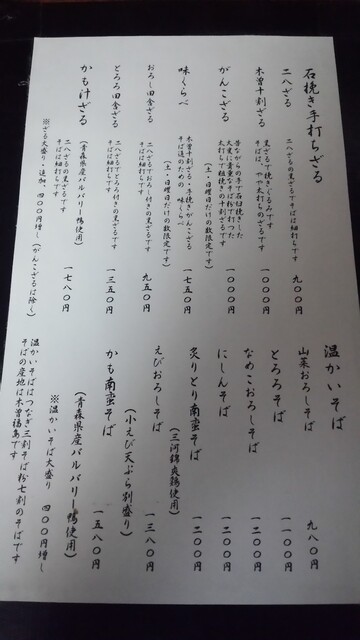 石挽き手打ちざる
二八ざる
二八ざるの黒ざるです
そばは細打ちです
九〇〇円
木曽十割ざる
黒ざるで挽きぐるみです
そばは、やや太打ちのざるです
一〇〇〇円
がんこざる
昔ながらの手で石臼挽きした
大変に貴重なそば粉で打つた
太打ちで粗挽きの十割ざるです
(土・日曜日だけの数限定です)
一〇〇〇円
味くらべ
木曽十割ざる・手挽きがんこざる
そば通のための 味くらべ
(土・日曜日だけの数限定です)
一七五〇円
おろし田舎ざる
二八ざるでおろし付きの黒ざるです
そばは細打ちです
九五〇円
とろろ田舎ざる
二八ざるでとろろ付きの黒ざるです
そばは細打ちです
一三五〇円
かも汁ざる
(青森県産バルバリー鴨使用)
二八ざるの黒ざるです
そばは細打ちです
一七八〇円
※ざる大盛り・追加、四〇〇円増し(がんこざるは除く)
温かいそば
山菜おろしそば
九八〇円
とろろそば
一一〇〇円
なめこおろしそば
一二〇〇円
にしんそば
一二〇〇円
炙りとり南蛮そば
(三河錦爽鶏使用)
一二〇〇円
えびおろしそば
(小えび天ぷら別盛り)
一三八〇円
かも南蛮そば
(青森県産バルバリー鴨使用)
一五八〇円
※温かいそば大盛り 四〇〇円増し
温かいそばはつなぎ三割そば粉七割のそばです
そばの産地は木曽福島です